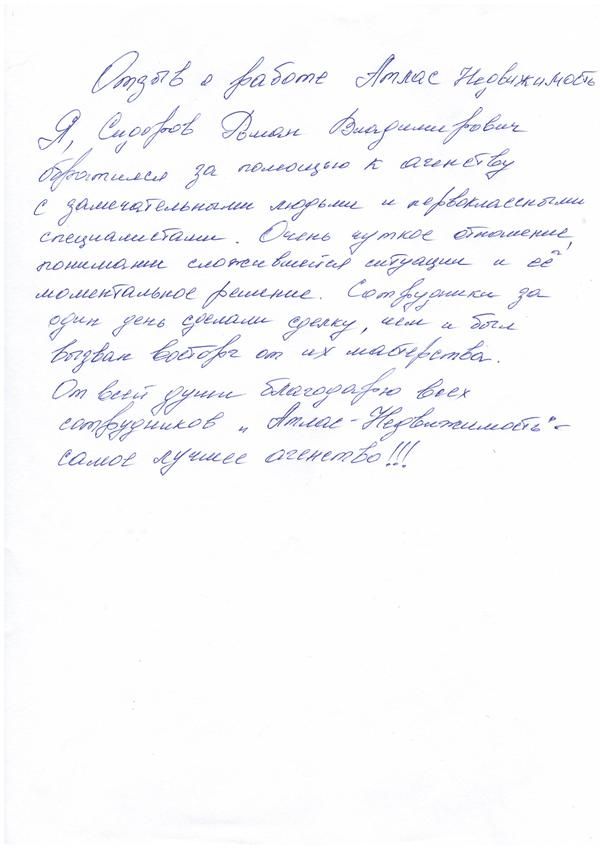 Отзыв о работе Атлас Недвижимость
Я, Сидоров Роман Владимирович
обратился за помощью к агенству
с замечательными людьми и первоклассными
специалистами. Очень чуткое отношение,
понимани сложившейся ситуации и её
моментальное решение. Сотрудники за
один день сделали сделку, чем и был
вызван восторг от их мастерства.
От всей души благодарю всех
сотрудников „Атлас-Недвижимость"-
самое лучшее агенство!!!